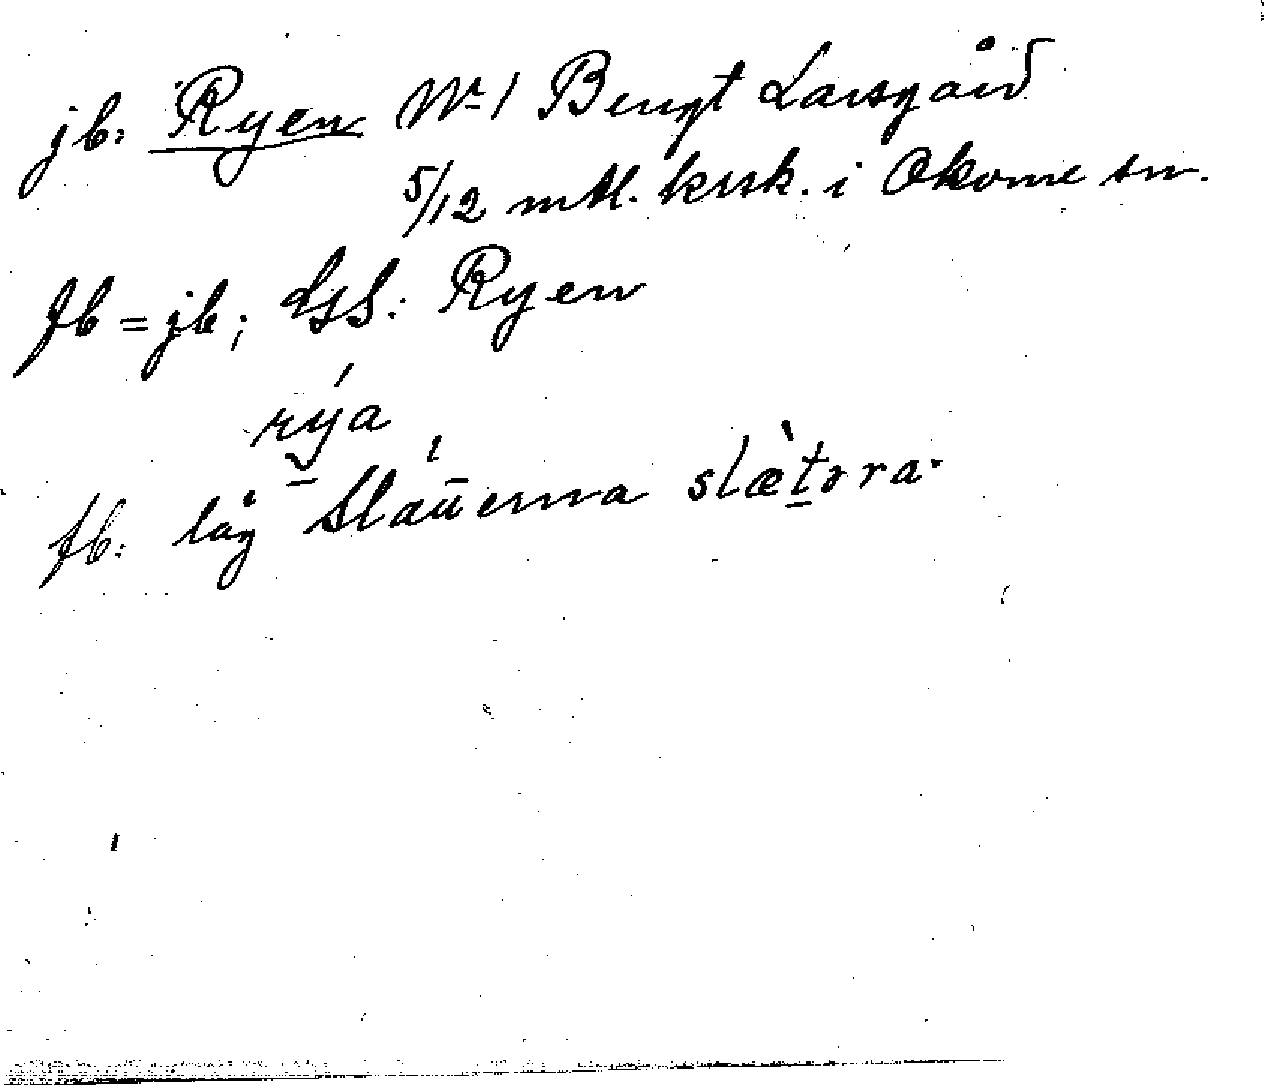 jb: Ryen Nr 1 Bengt Larsgård
5/12 mtl. krsk. i Okome sn.
fb = jb; Lsg: Ryen
rýa
fb: låg slätterna slætǝra.